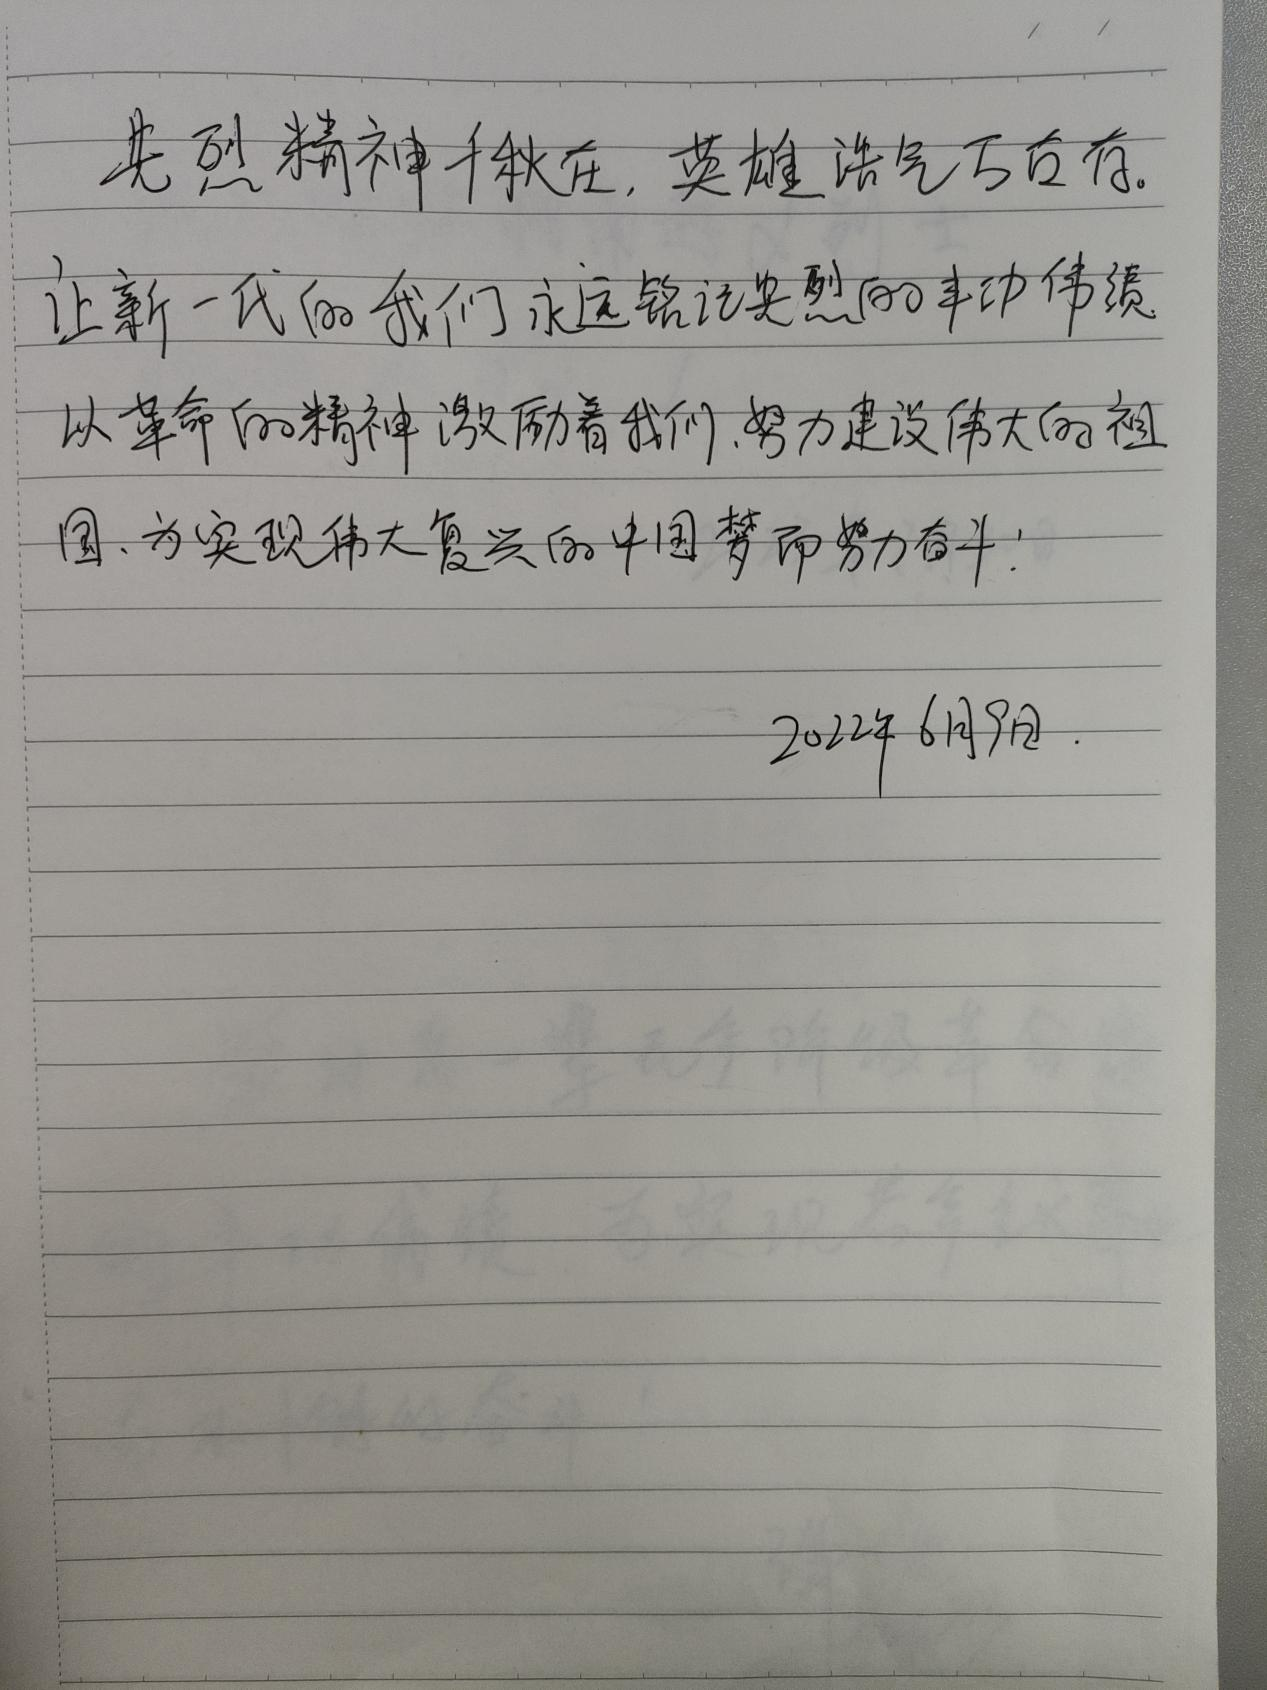 先烈精神千秋在，英雄浩气万古存。
让新一代的我们永远铭记英烈的丰功伟绩
以革命的精神激励着我们、努力建设伟大的祖
国、为实现伟大复兴的中国梦而努力奋斗！
2022年6月9日.